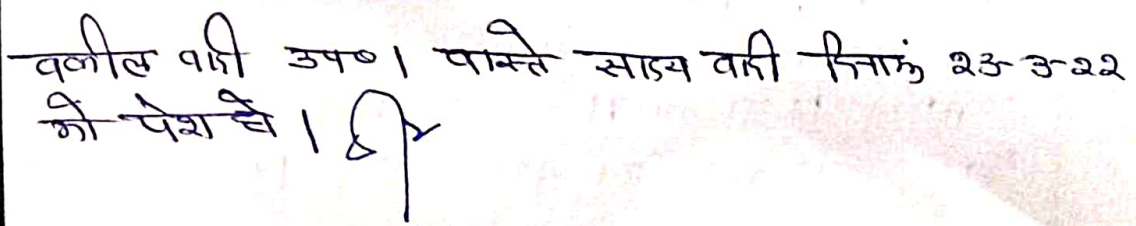 वकील वादी उप०। वास्ते साक्ष्य वादी दिनांक २३-३-२२
को पेश हो।